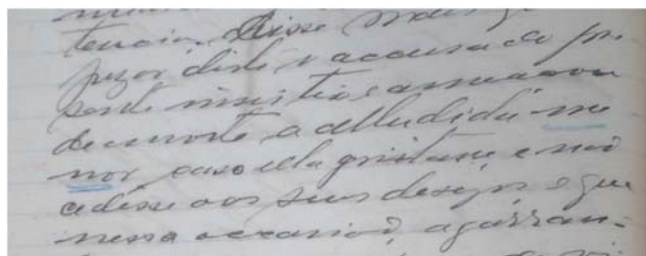 tencia. Disse mais que
pezar disto o accusado pre
sente insistio e ameaçou
de morte a alludida me
nor caso ella gritasse e não
cedesse aos seus desejos e que
nessa occasião, agarran-